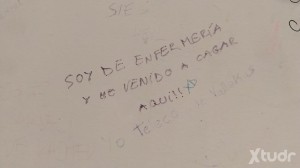 SIE
SOY DE ENFERMERÍA
Y HE VENIDO A CAGAR
AQUI!!
Xtudr